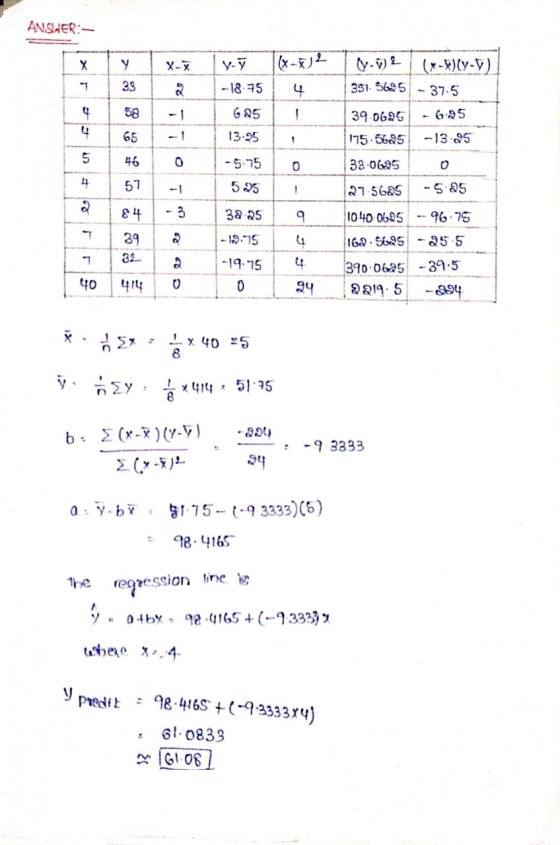 ANSWER:-
x y x-x̄ y-ȳ (x-x̄)² (y-ȳ)² (x-x̄)(y-ȳ)
7 33 2 -18.75 4 351.5625 -37.5
4 58 -1 6.25 1 39.0625 -6.25
4 65 -1 13.25 1 175.5625 -13.25
5 46 0 -5.75 0 33.0625 0
4 57 -1 5.25 1 27.5625 -5.25
2 84 -3 32.25 9 1040.0625 -96.75
7 39 2 -12.75 4 162.5625 -25.5
7 32 2 -19.75 4 390.0625 -39.5
40 414 0 0 24 2219.5 -224
x̄ = 1/n Σx = 1/8 x 40 = 5
ȳ = 1/n Σy = 1/8 x 414 = 51.75
b = Σ(x-x̄)(y-ȳ) / Σ(x-x̄)² = -224/24 = -9.3333
a = ȳ-bx̄ = 51.75-(-9.3333)(5)
= 98.4165
The regression line is
ŷ = a+bx = 98.4165+(-9.3333)x
where x=.4
y predit = 98.4165+(-9.3333x4)
= 61.0833
≃ 61.08